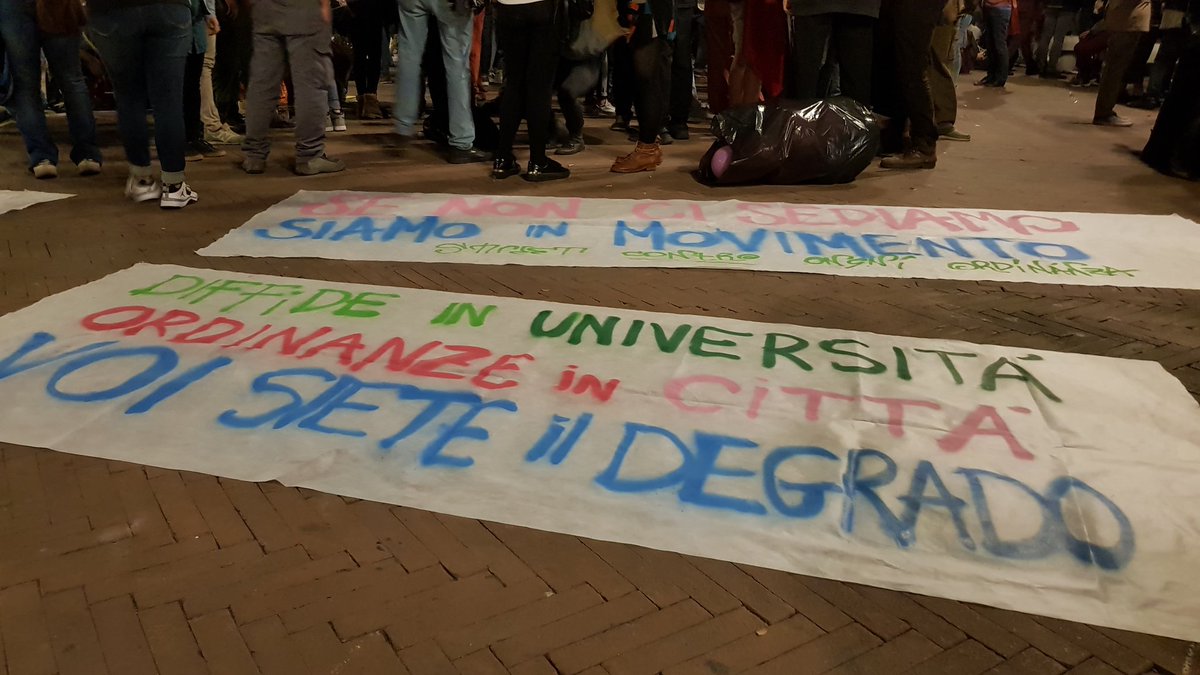 SE NON CI SEDIAMO
SIAMO in MOVIMENTO
CONTRO ORDINANZA
DIFFiDE IN UNIVERSITÁ
ORDINANZE in CiTTÁ
VOI SIETE il DEGRADO